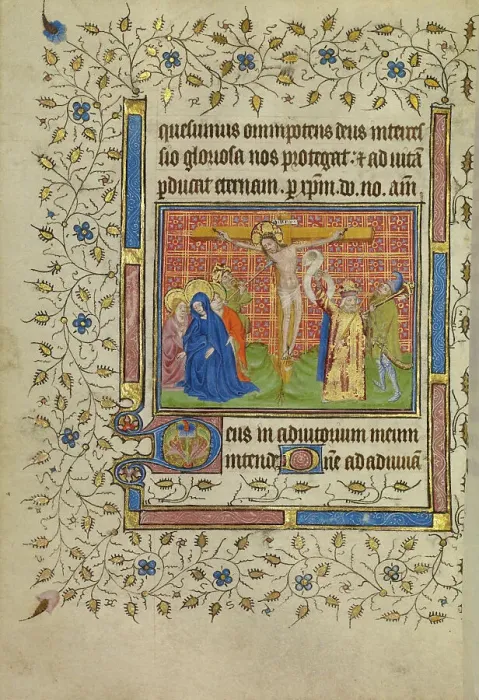 quesumus omnipotens deus interces
sio gloriosa nos protegat: ⁊ ad uitā
p̱ducat eternam. p̱ xp̄m. dn̄. no. am̄
Deus in adiutorium meum
intende. Dn̄e ad adiuuā